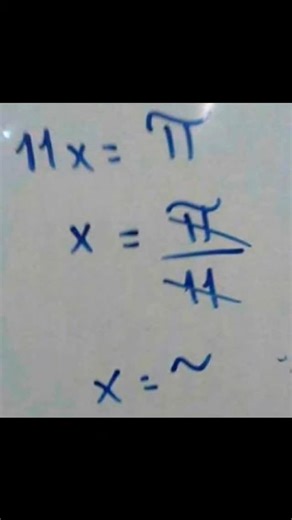 11x = π
x = π/11
x = ~